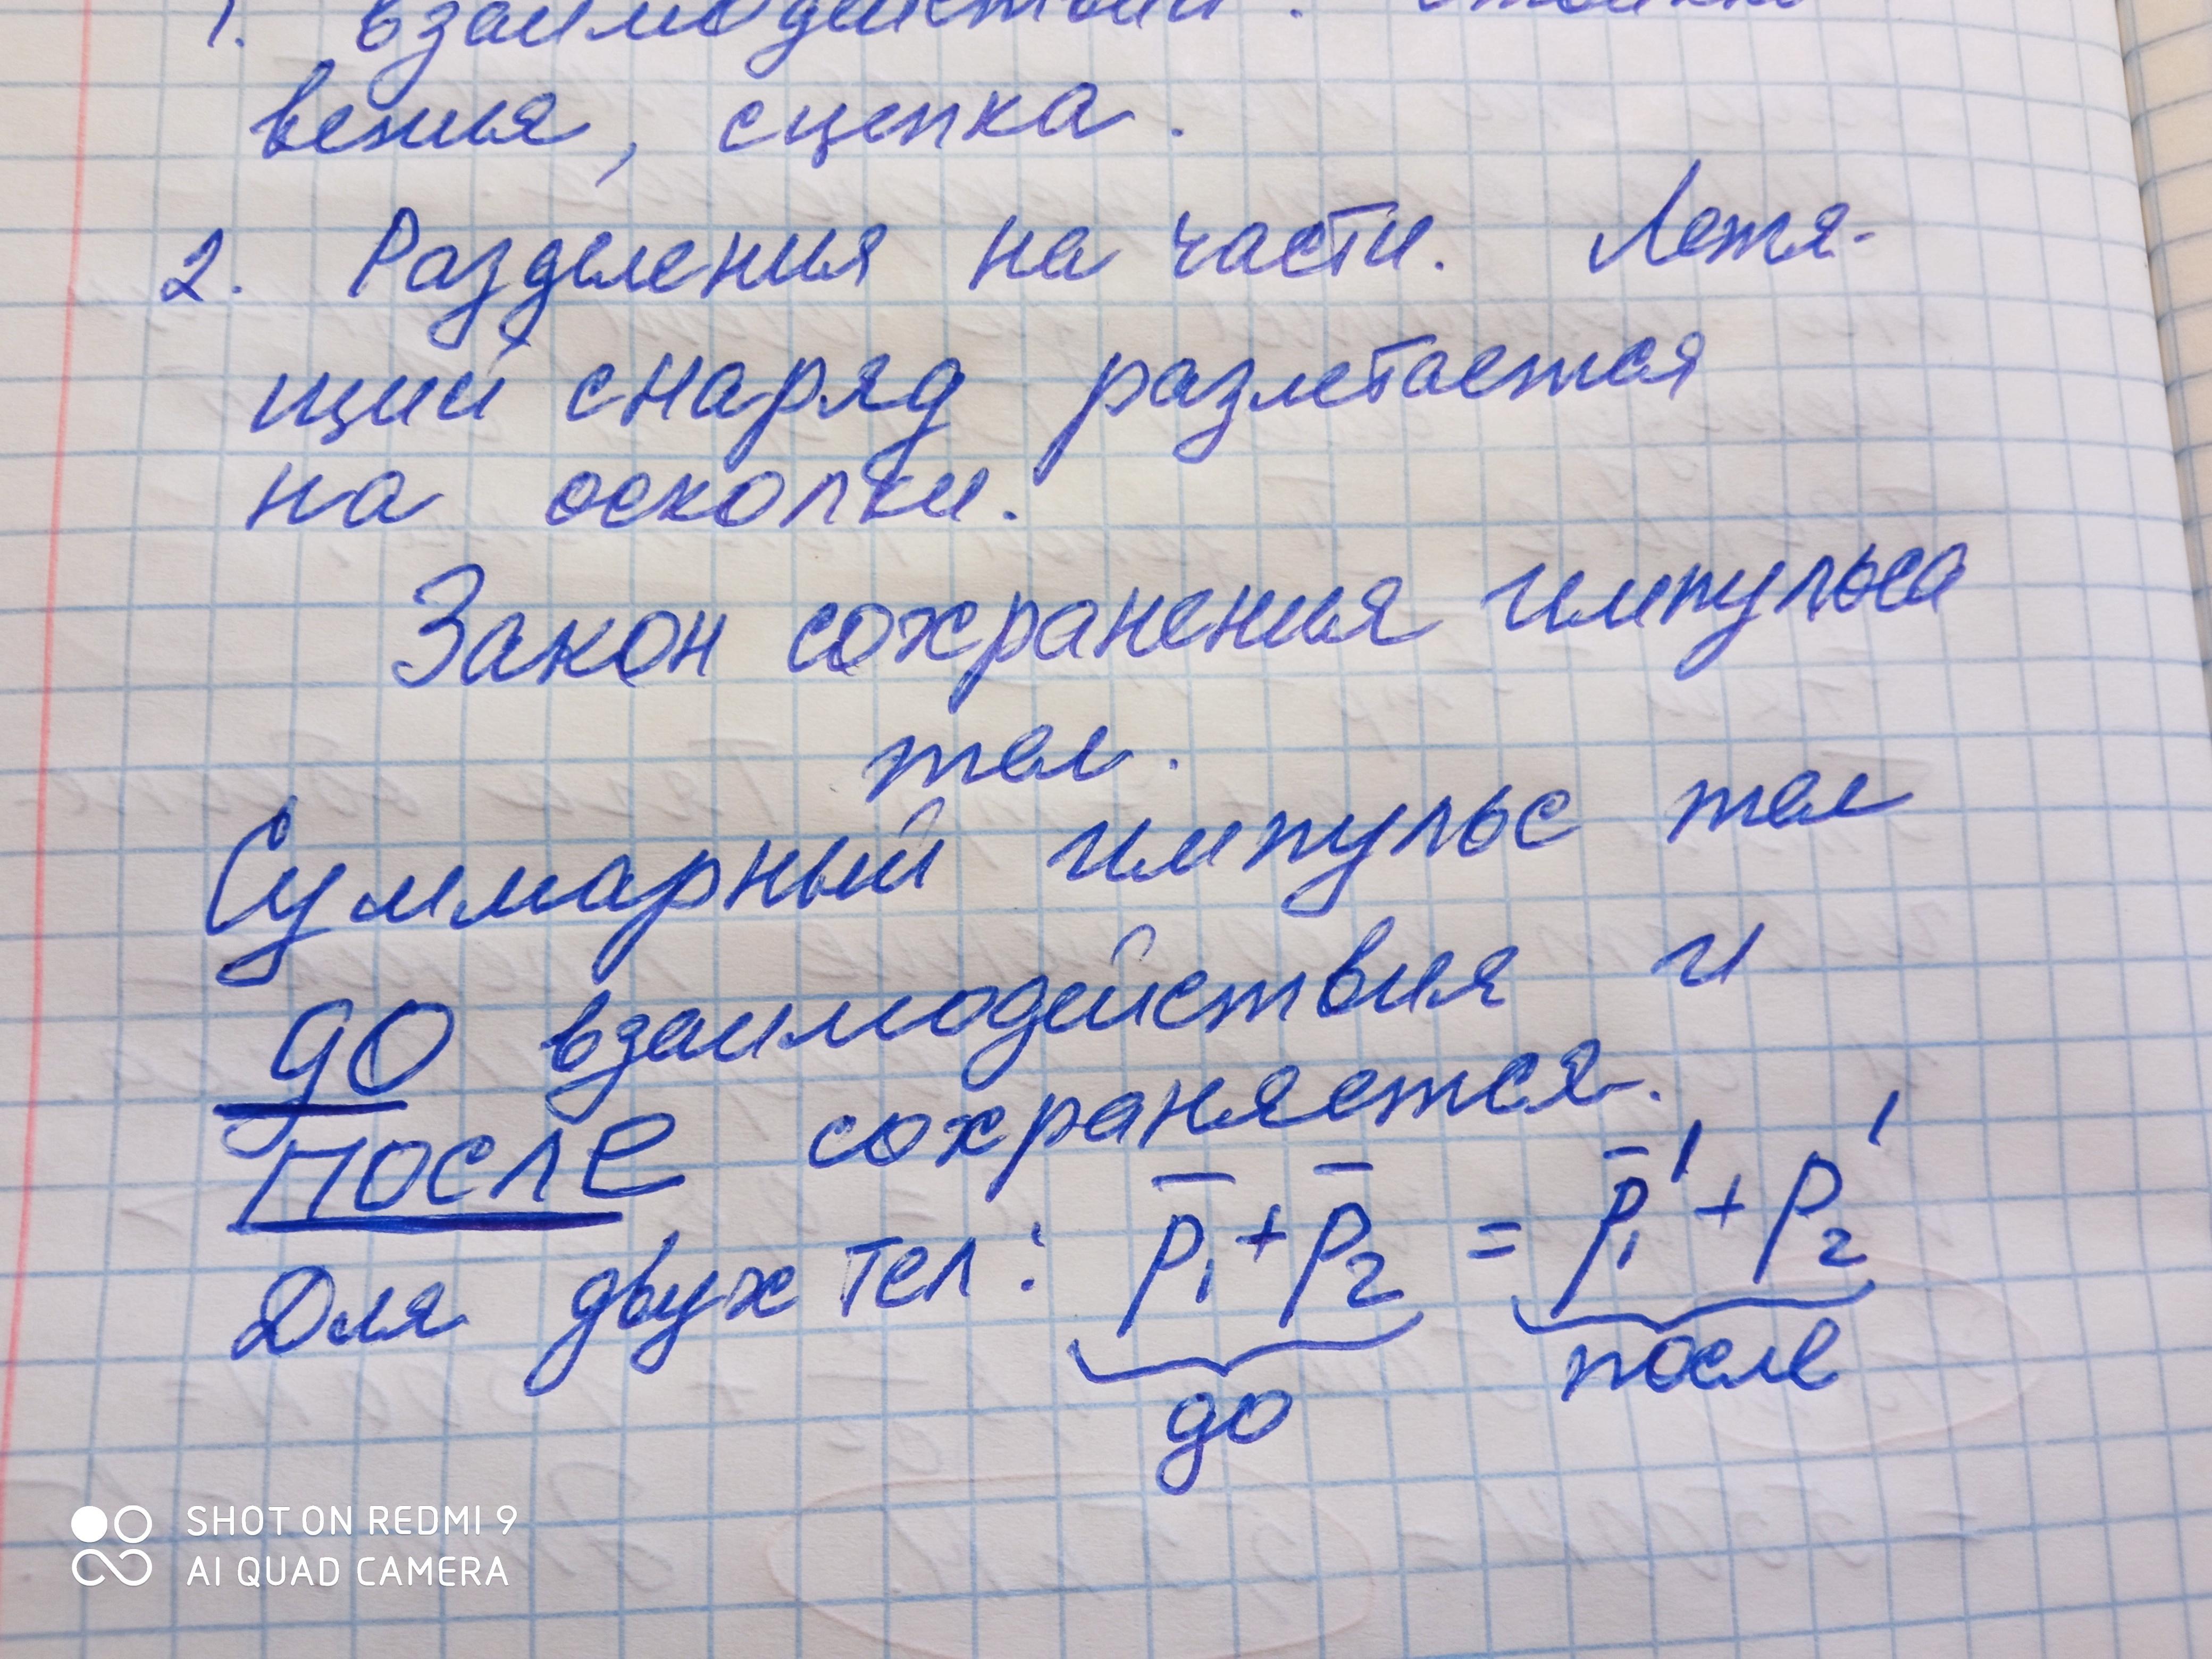 1. взаимодействии. Столкно
вения, сцепка.
2. Разделения на части. Летя-
щий снаряд разлетается
на осколки.
Закон сохранения импульса
тел.
Суммарный импульс тел
до взаимодействия и
после сохраняется.
Для двух тел: p̄₁ + p̄₂ = p̄₁' + p₂'
до после
SHOT ON REDMI 9
AI QUAD CAMERA